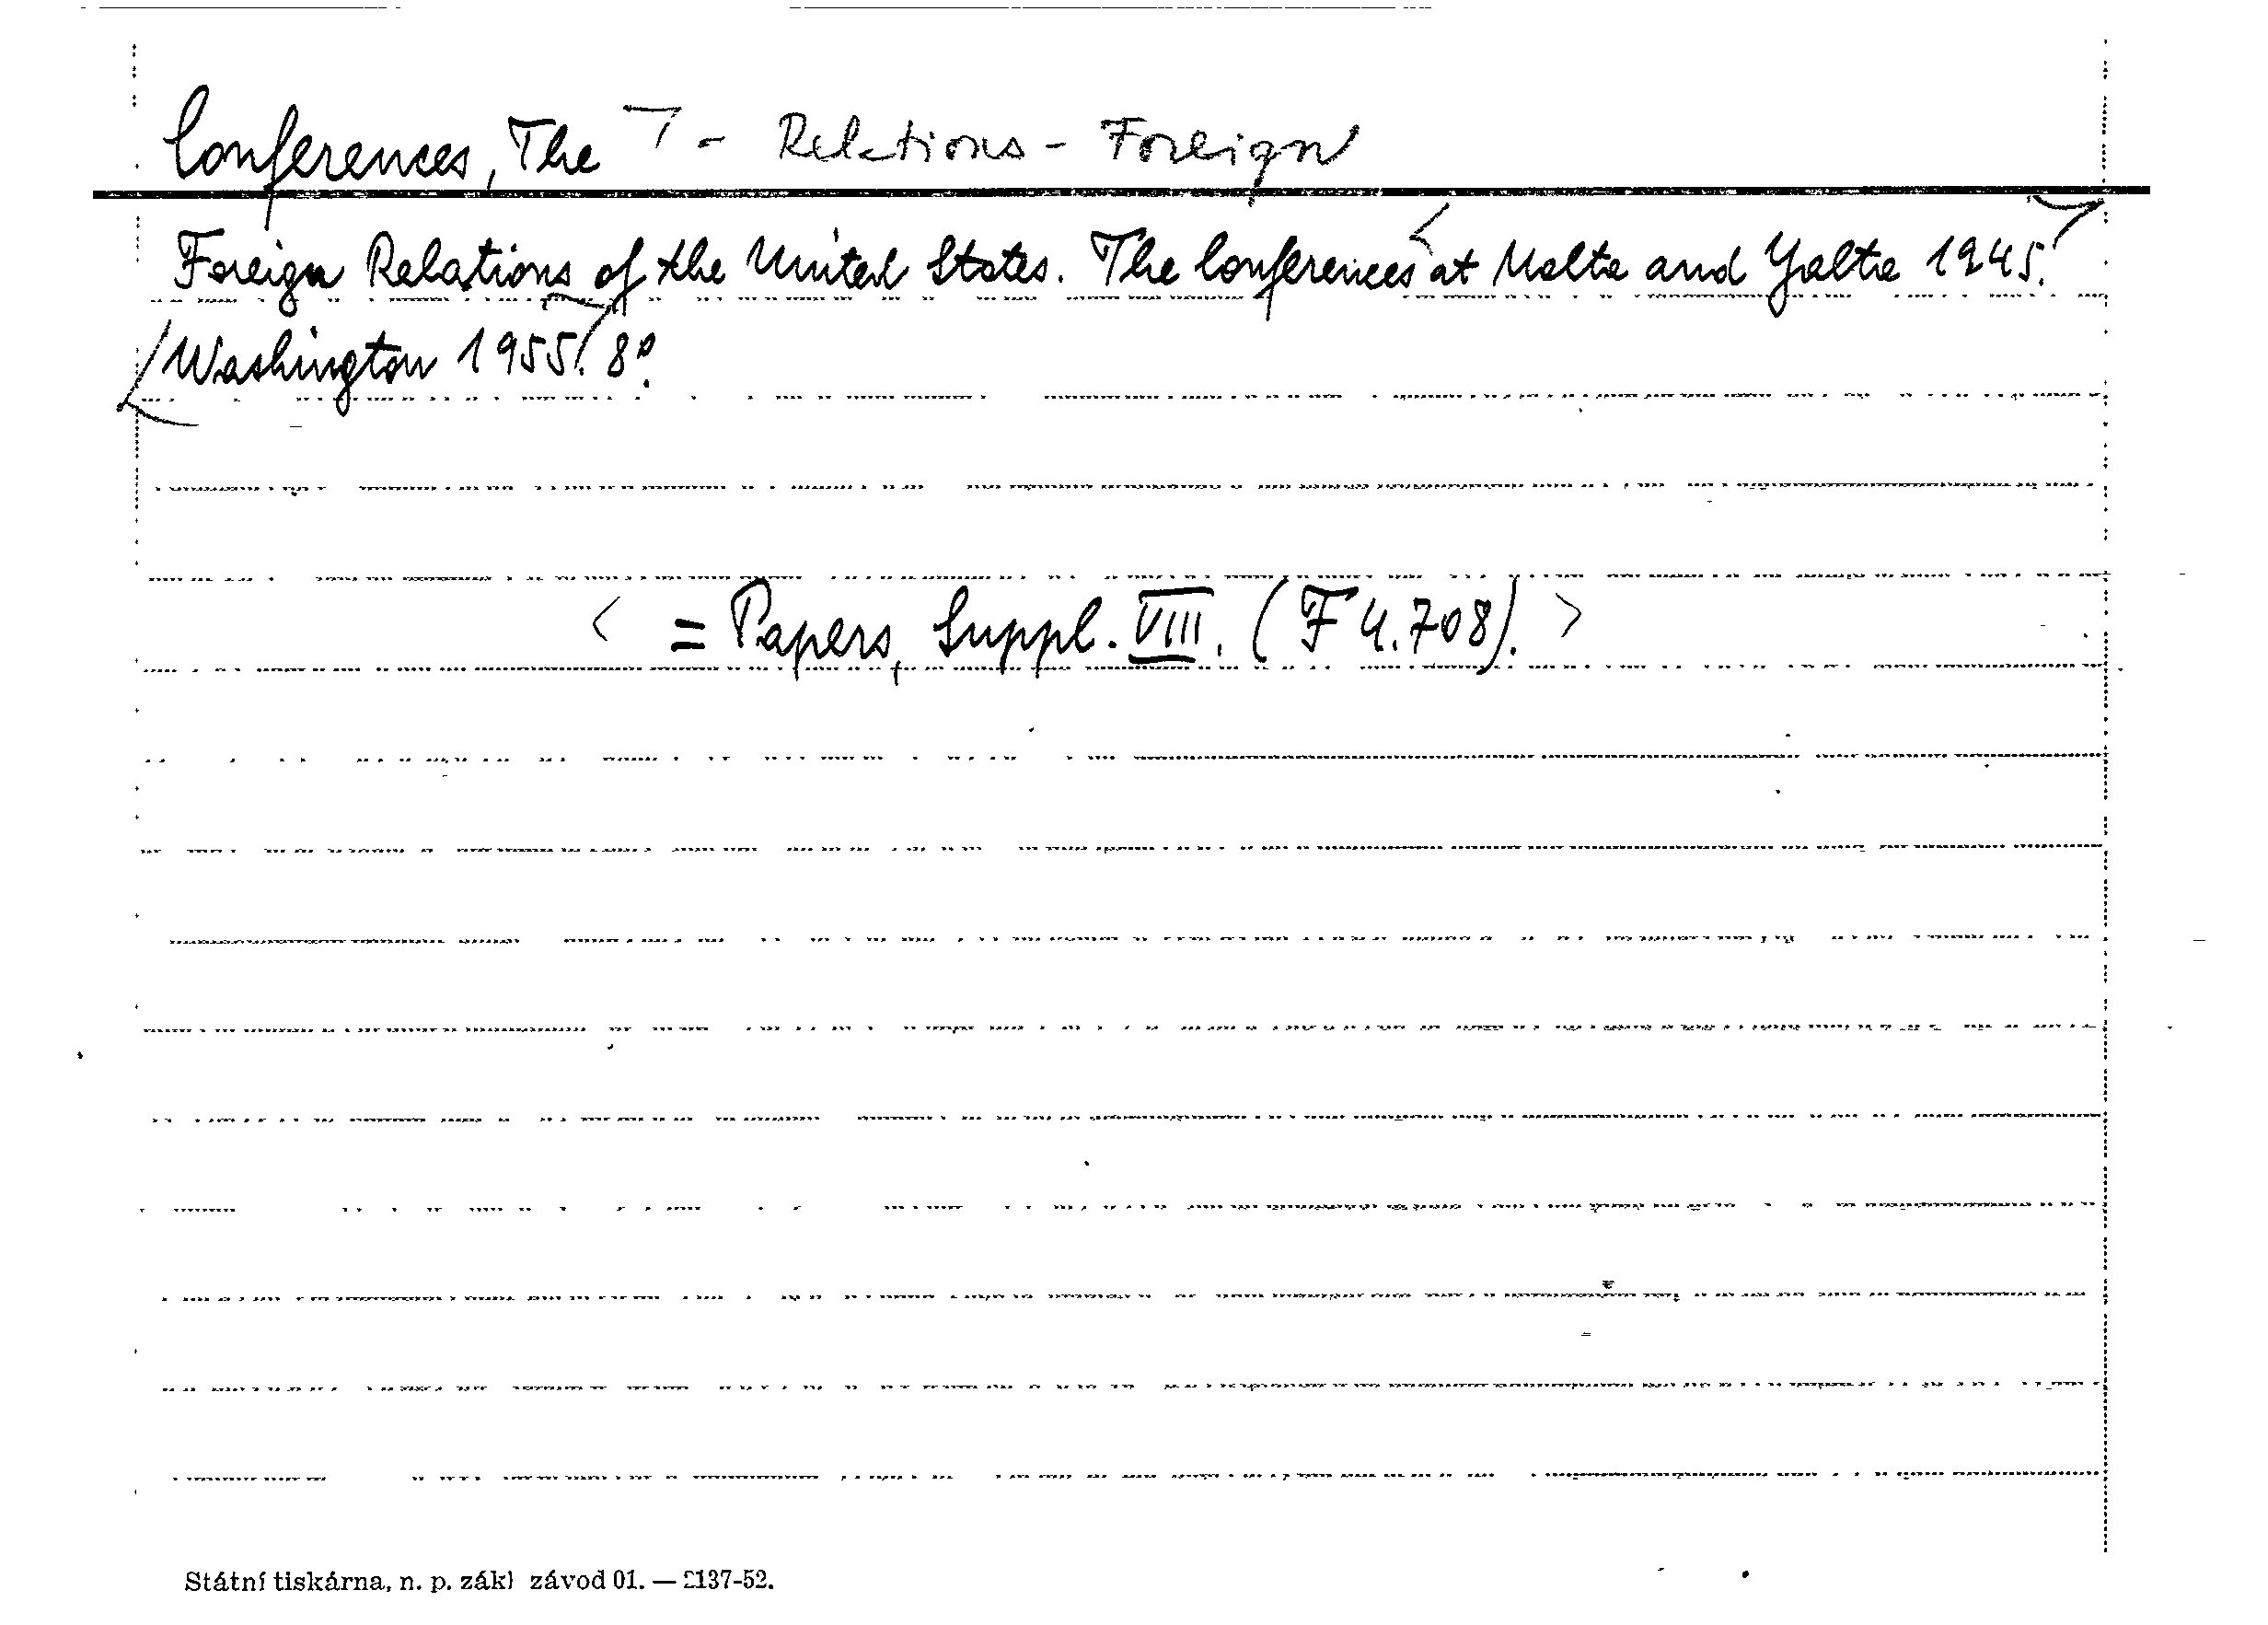 Conferences, The ¬ - Relations - Foreign
Foreign Relations of the United States. The Conferences at Malta and Yalta 1945.
Washington 1955. 8º.
< = Papers, Suppl. VIII. (F 4.708). >
Státní tiskárna, n. p. zákl závod 01. — 2137-52.